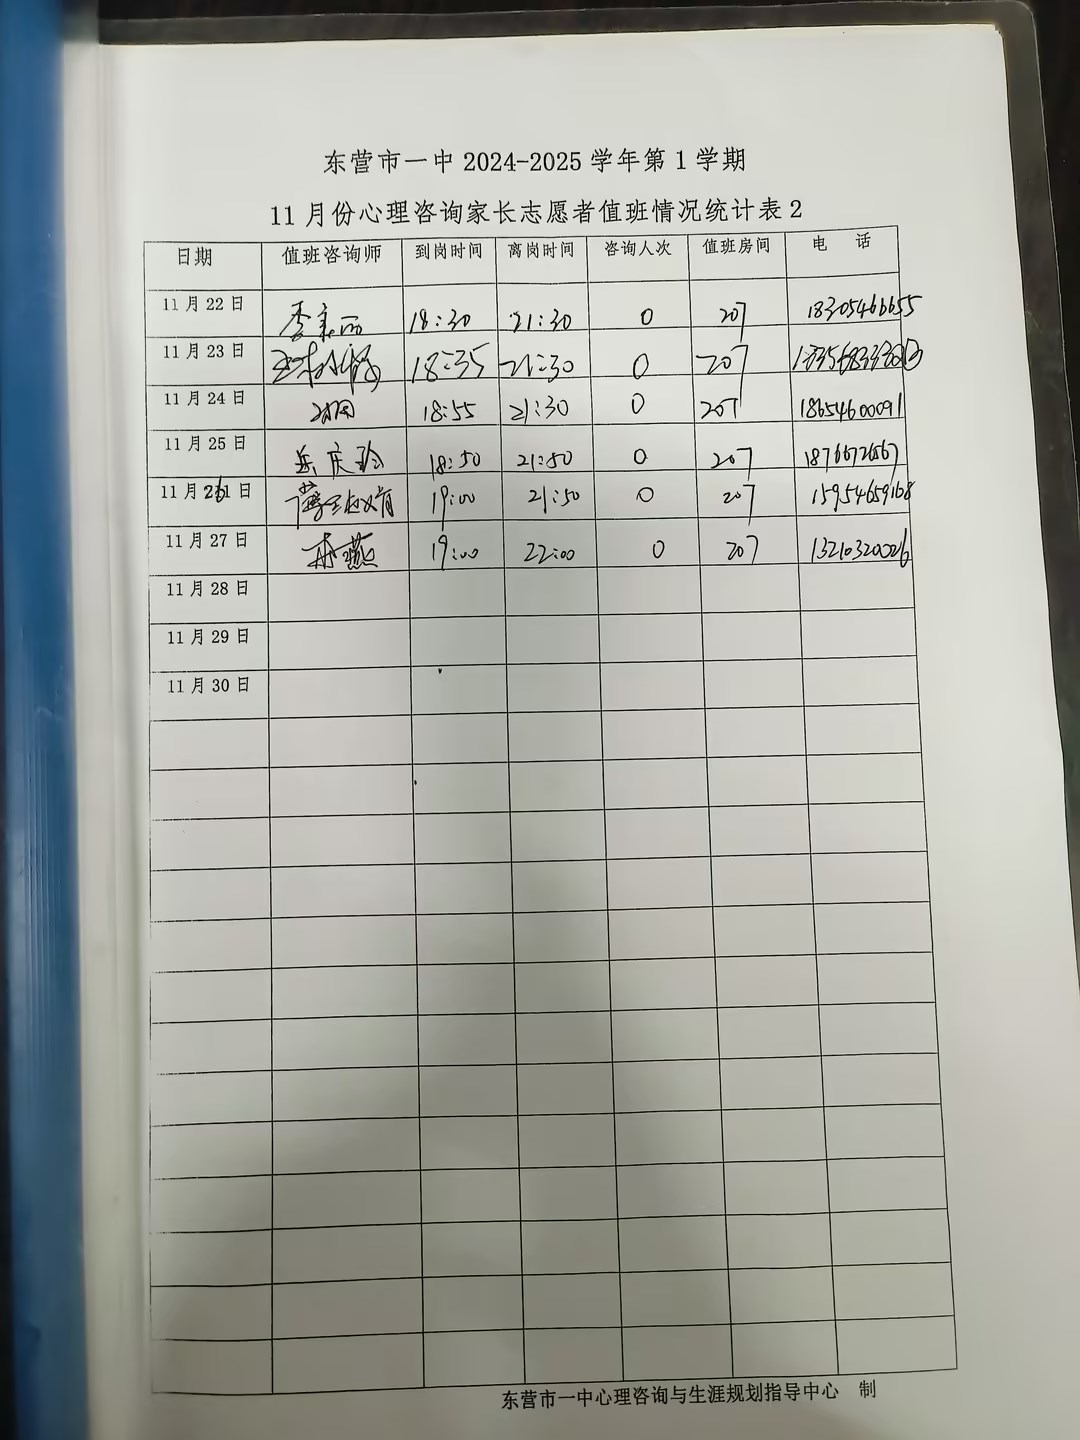 东营市一中 2024-2025 学年第 1 学期
11 月份心理咨询家长志愿者值班情况统计表 2
日期 值班咨询师 到岗时间 离岗时间 咨询人次 值班房间 电 话
11 月 22 日 李美丽 18:30 21:30 0 207 18305466655
11 月 23 日 18:35 21:30 0 207
11 月 24 日 18:55 21:30 0 207 18654600091
11 月 25 日 岳庆玲 18:50 21:50 0 207 18766726567
11 月 26 日 19:00 21:50 0 207 15954659168
11 月 27 日 燕 19:00 22:00 0 207 13210320026
11 月 28 日
11 月 29 日
11 月 30 日
东营市一中心理咨询与生涯规划指导中心 制